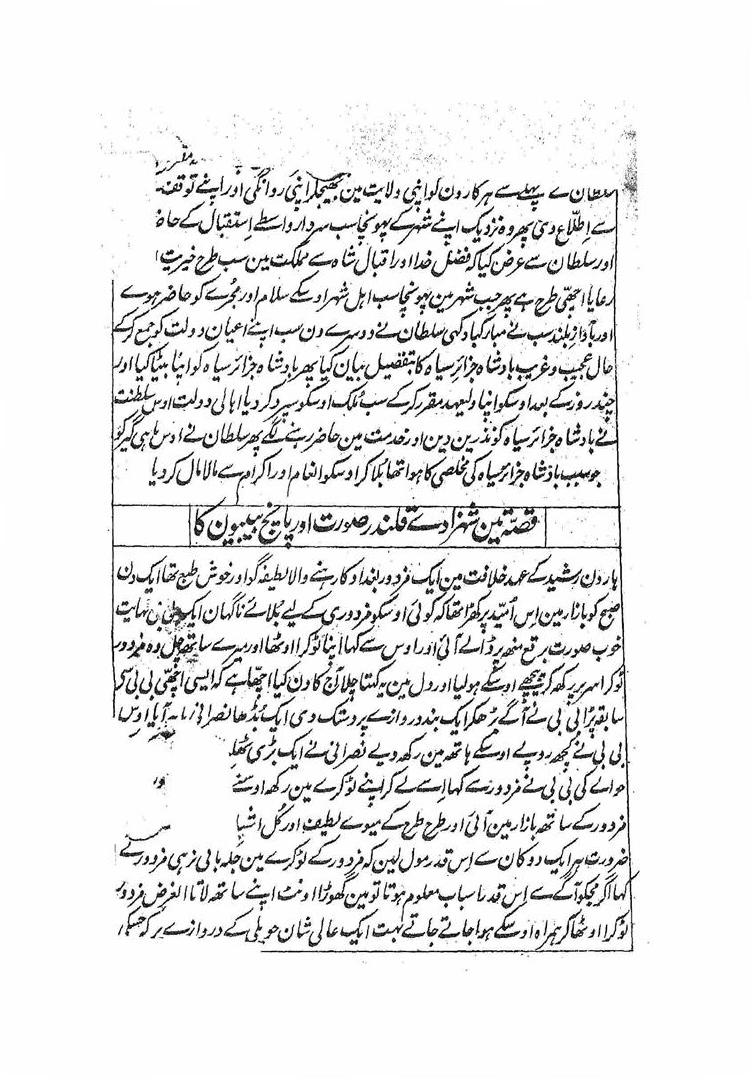 مقرر
سلطان نے پہلے سے ہر کارون کو اپنی ولایت مین بھیجکر اپنی روانگی اور اپنے توقف
سے اطلاع دی پھر وہ نزدیک اپنے شہر کے پہونچا سب سردار واسطے استقبال کے حاضر
اور سلطان سے عرض کیا کہ فضل خدا اور اقبال شاہ سے مملکت مین سب طرح خیریت
رعایا اچھی طرح ہے پھر جب شہر مین پہونچا سب اہل شہر اوسکے سلام اور مجرے کو حاضر ہوے
اور بآواز بلند سب نے مبارکباد کہی سلطان نے دوسرے دن سب اپنے اعیان دولت کو جمع کر کے
حال عجیب و غریب بادشاہ جزائر سیاہ کا بتفصیل بیان کیا پھر بادشاہ جزائر سیاہ کو اپنا بیٹا کیا اور
چند روز کے بعد اوسکو اپنا ولیعہد مقرر کر کے سب ملک اوسکو سپرد کر دیا اہالی دولت اوس سلطنت
نے بادشاہ جزائر سیاہ کو نذرین دین اور خدمت مین حاضر رہنے لگے پھر سلطان نے اوس ماہی گیر کو
جو سبب بادشاہ جزائر سیاہ کی مخلصی کا ہوا تھا بلا کر اوسکو انعام اور اکرام سے مالا مال کر دیا
قصہ تین شہزادے قلندر صورت اور پانچ بیبیون کا
ہارون رشید کے عہد خلافت مین ایک مزدور بغداد کا رہنے والا لطیفہ گو اور خوش طبع تھا ایک دن
صبح کو بازار مین اس امید پر کھڑا تھا کہ کوئی اوسکو مزدوری کے لیے بلائے ناگہان ایک بی بی نہایت
خوب صورت برقع منھ پر ڈالے آئی اور اوس سے کہا اپنا ٹوکرا اوٹھا اور میرے ساتھ چل وہ مزدور
ٹوکرا سر پر رکھ کر پیچھے اوسکے ہولیا اور دل مین یہ کہتا چلا آج کا دن کیا اچھا ہے کہ ایسی اچھی بی بی سے
سابقہ پڑا بی بی نے آگے بڑھکر ایک بند دروازے پر دستک دی ایک بڈھا نصرانی آیا اوس
بی بی نے کچھ روپے اوسکے ہاتھ مین رکھ دیے نصرانی نے ایک بڑی ٹھلیا
حوالے کی بی بی نے مزدور سے کہا اسے لے کر اپنے ٹوکرے مین رکھ اوسنے
مزدور کے ساتھ بازار مین آئی اور طرح طرح کے میوے لطیف اور کل اشیا
ضرورت ہر ایک دوکان سے اس قدر مول لین کہ مزدور کے ٹوکرے مین جگہ باقی نرہی مزدور نے
کہا اگر مجکو آگے سے اس قدر اسباب معلوم ہوتا تو مین گھوڑا اونٹ اپنے ساتھ لاتا الغرض مزدور
ٹوکرا اوٹھا کر ہمراہ اوسکے ہوا جاتے جاتے ایک عالی شان حویلی کے دروازے پر کہ جسکی